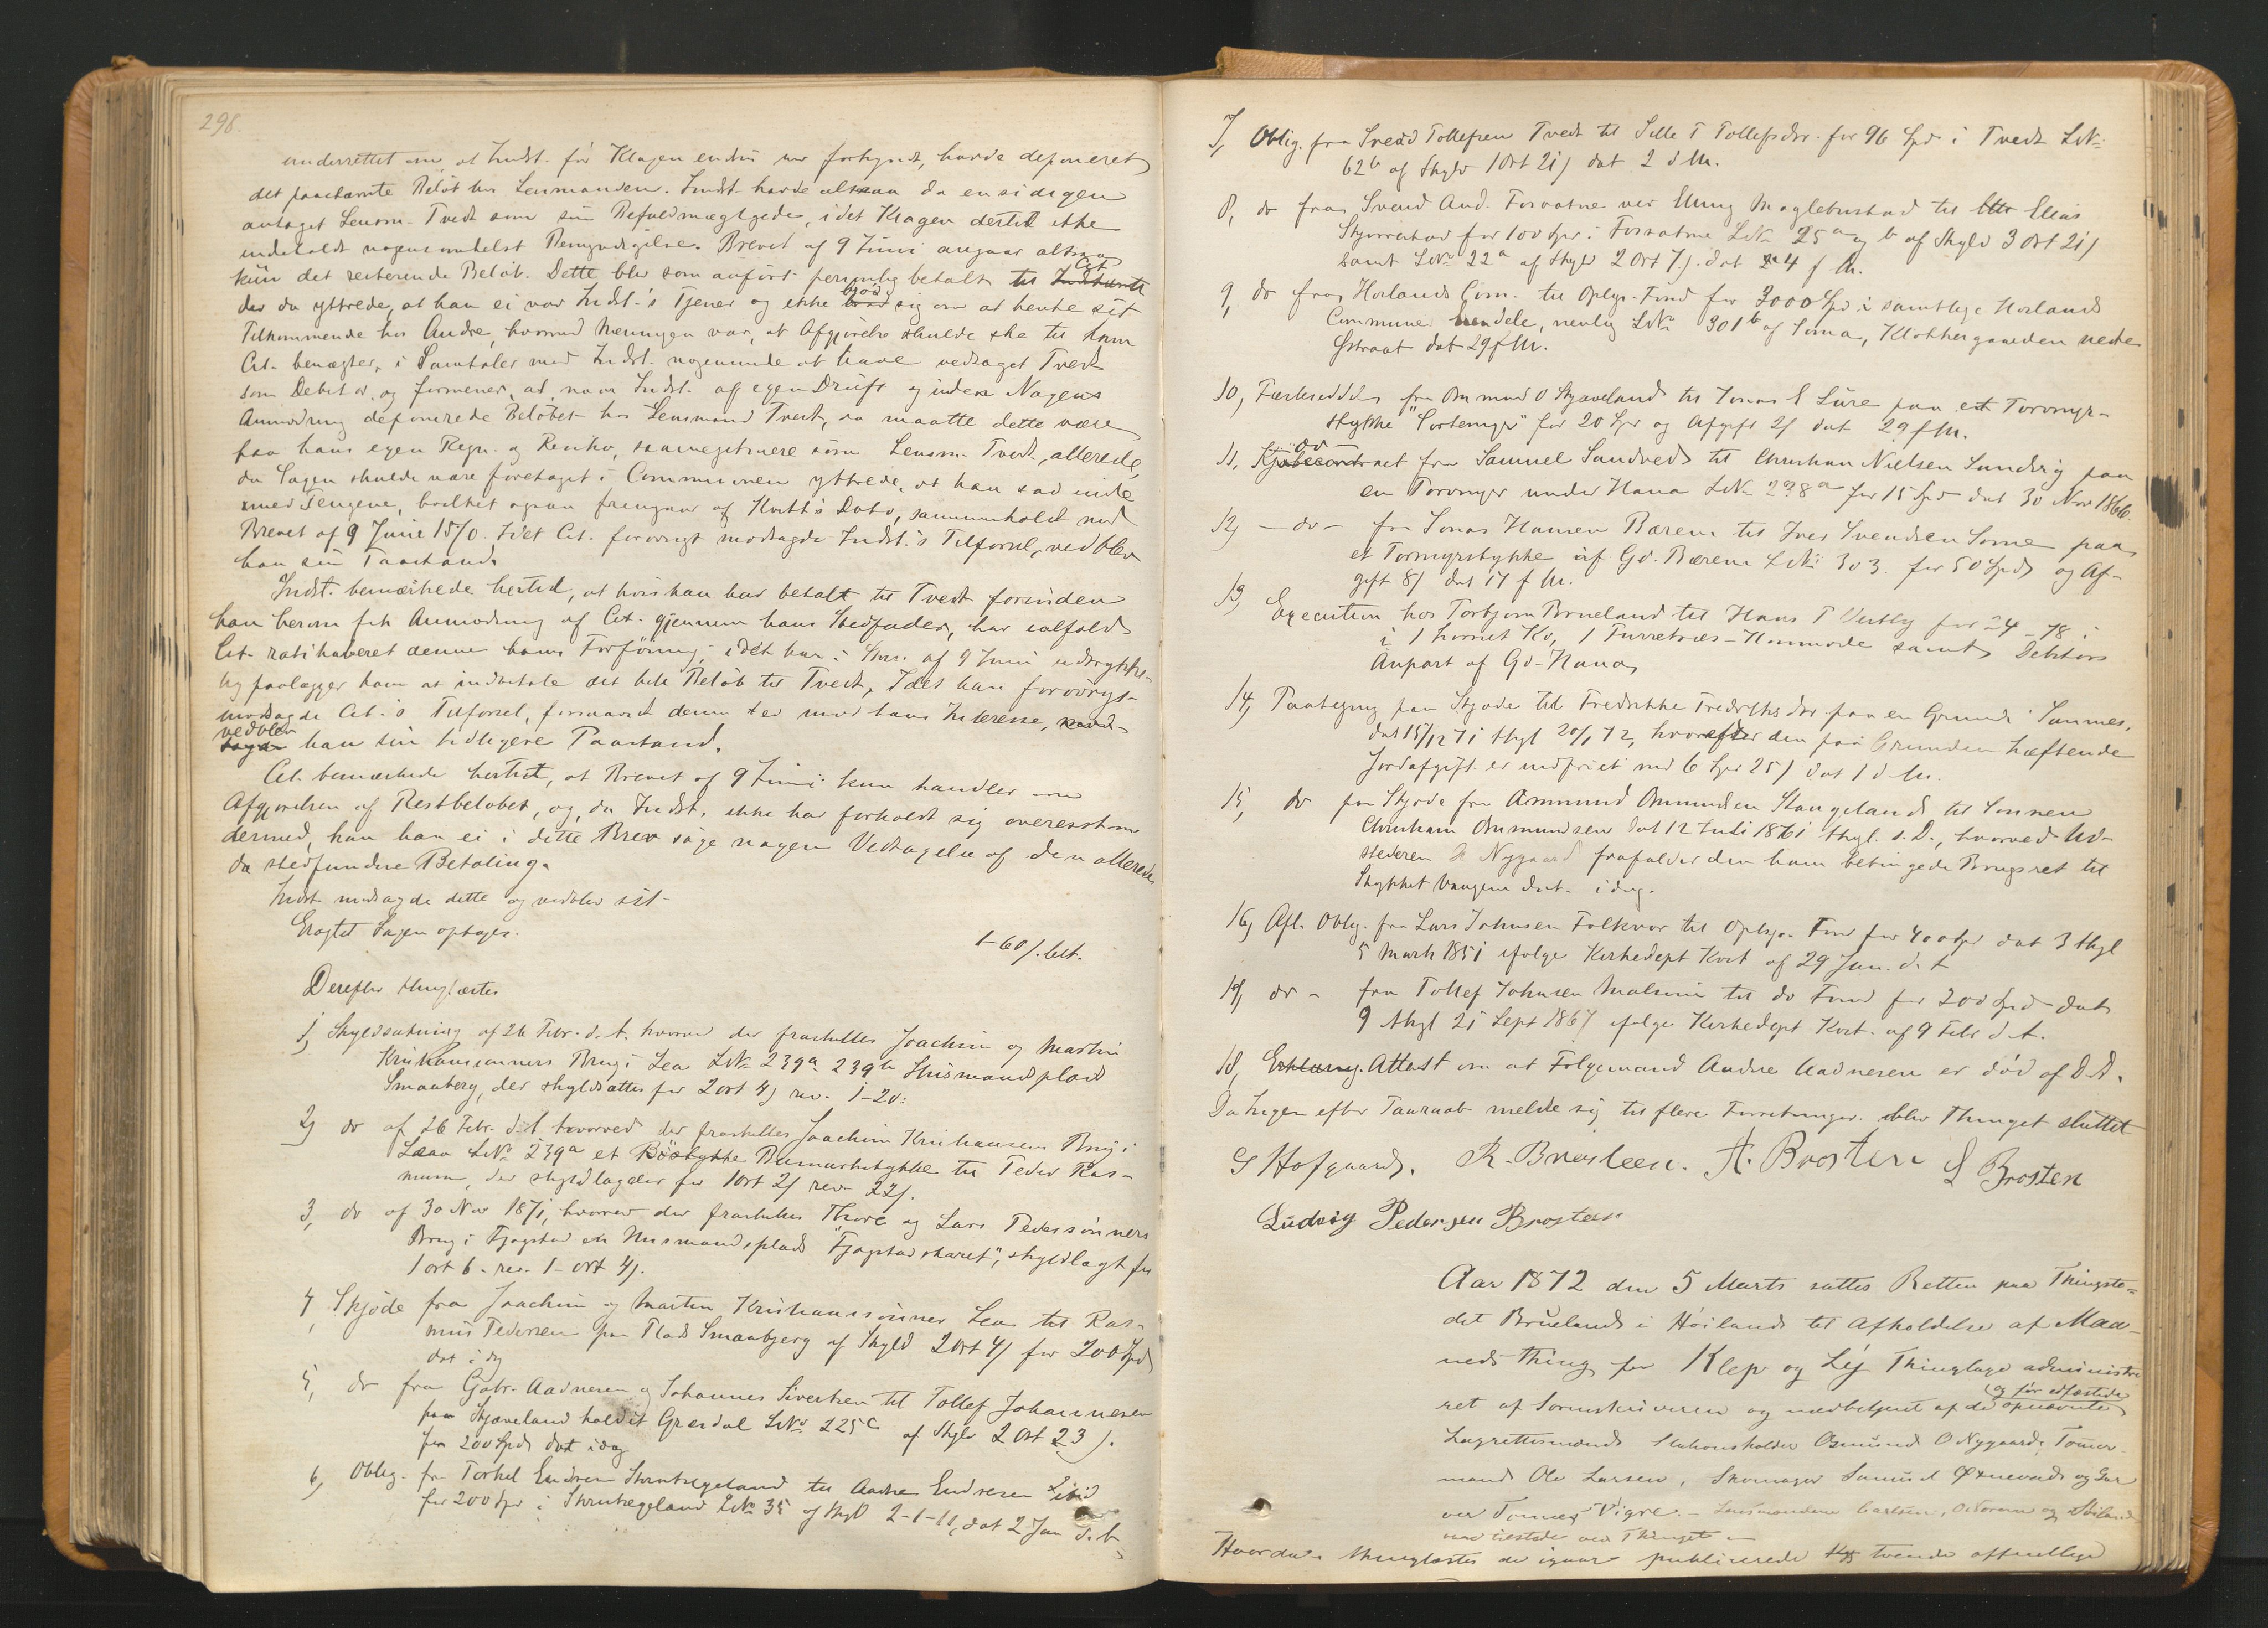 298.
underrettet om at Indst. før Klagen endnu var forkyndt, havde deponeret
det paastævnte Beløb hos Lensmanden. Indst. havde altsaa da ensidigen
antaget Lensm. Tvedt som sin Befuldmægtgede, idet Klagen dertil ikke
indeholdt nogensomhelst Bemyndigelse. Brevet af 9 Juni angaar altsaa
kun det resterende Beløb. Dette blev som anført personlig betalt til Indstevnte Cit.
der da yttrede, at han ei var Indst.'s Tjener og ikke brød sig om at hente sit
Tilkommende hos Andre, hvormed Meningen var, at Afgjørelse skulde ske til ham
Cit. benægter, i Samtaler med Indst. nogensinde at have vedtaget Tvedt
som Debitor, og formener, at naar Indst. af egen Drift og uden Nogens
Anmodning deponerede Beløbet hos Lensmand Tvedt, saa maatte dette være
paa hans egen Regn. og Risiko, saameget mere som Lensm. Tvedt, allerede
da Sagen skulde være foretaget i Commissionen yttrede, at han sad inde
med Pengene, hvilket ogsaa fremgaar af Kvitt's Dato, sammenholdt med
Brevet af 9 Juni 1870. Idet Cit. forøvrigt modsagde Indst.'s Tilførsel, vedblev
han sin Paastand.
Indst. bemærkede hertil, at hvis han har betalt til Tvedt forinden
han herom fik Anmodning af Cit. gjennem hans Stedfader, har ialfald
Cit. ratihaberet denne hans Forføining, idet han i Skr. af 9 Juni udtrykke-
lig paalægger ham at indbetale det hele Beløb til Tvedt. Idet han forøvrigt
modsagde Cit.'s Tilførsel, forsaavidt denne stred mod hans Interesse, mod-
sagde vedblev han sin tidligere Paastand.
Cit. bemærkede hertil, at Brevet af 9 Juni kun handler om
Afgjørelsen af Restbeløbet, og, da Indst. ikke har forholdt sig overensstem
dermed, kan han ei i dette Brev søge nogen Vedtagelse af den allerede
da stedfundne Betaling.
Indst. modsagde dette og vedblev sit.
Eragtet Sagen optages.
1-60 s. bet.
Derefter thinglæstes
1, Skyldsætning af 26 Febr. d. A. hvorved der fraskilles Joachim og Martin
Kristiansønners Brug i Lea LNo 239a 239b Husmandsplads
Smaaberg, der skyldsættes for 2 ort 4 s rev. 1-20:
2, do af 26 Febr. d. A. hvorved der fraskilles Joachim Kristiansens Brug i
Leaa LNo 239a et Bøstykke Bumarkstykke til Peder Ras-
musen, der skyldlægges for 1 ort 2 s rev. 22 s.
3, do af 30 Nov 1871, hvorved der fraskilles Thore og Lars Pedersønners
Brug i Fjogstad en Husmandsplads "Fjogstadskaret", skyldlagt for
1 ort 6 - rev. 1 - ort 4 s.
4, Skjøde fra Joachim og Martin Kristiansønner Lea til Ras-
mus Pedersen paa Plads Smaabjerg af Skyld 2 ort 4 s for 200 Spd
dat i dag
5, do fra Gabr. Aadnesen og Johannes Sivertsen til Tollef Johannesen
paa Skjæveland kaldet Grasdal LNo 225c af Skyld 2 Ort 23 s.
for 200 Spd dat idag
6, Oblig. fra Torkel Endresen Skrudegeland til Aadne Endresen ibid
for 200 Spd i Skrudegeland LNo 35 af Skyld 2-1-11, dat 2 Jan d. A.
7, Oblig. fra Svend Tollefsen Tvedt til Sille T Tollefsdtr. for 96 Spd i Tvedt LNo
62b af Skyld 1 Ort 21 s dat 2 d. M.
8, do fra Svend And. Foss ved Elias
for 100 Spd i LNo 25a og b af Skyld 3 Ort 21 s
samt LNo 22a af Skyld 2 Ort 7 s. dat 24 f. M.
9, do fra Høilands Com. til Oplys. Fond for 3000 Spd i samtlige Høilands
Commune Eiendele, nemlig LNo 301b af Soma, Klokkergaarden nedre
Hstraat dat 29 f M.
10, Fæsteseddel fra Omund O Skjæveland til Jonas E Lure paa et Torvmyr-
stykke "Sortemyr" for 20 Spd og Afgift 2 s dat 29 f M.
11, Kjøbecontract do fra Samuel Sandved til Christian Nielsen Sandvig paa
en Torvmyr under Hana LNo 298a for 15 Spd dat 30 Nov 1866.
12, - do - fra Jonas Hansen Bærem til Iver Svendsen Some paa
et Torvmyrstykke af Gd. Bærem LNo 303 for 50 Spd og Af-
gift 8 s dat 17 f M.
13, Execution hos Torbjørn Brueland til Hans T Vestly for 24-78 i
i 1 hornet Ko, 1 Furretræs-Kommode samt Debitors
Anpart af Gd. Hana
14, Paategning paa Skjøde til Fredrikke Fredriksdtr paa en Grund i Sannes,
dat 15/12 71 thgl 20/1 72, hvorefter den paa Grunden hæftende
Jordafgift er indfriet med 6 Spd 25 s dat 1 d. M.
15, do paa Skjøde fra Ommund Ommundsen Stangeland til Sønnen
Christian Ommundsen dat 12 Juli 1871 thgl. s. D., hvorved Ud-
stederen O Nygaard frafalder den ham betingede Brugsret til
Stykket Vaagene dat. i dag.
16, Afl. Oblig. fra Lars Johnsen Folkvor til Oplys. Fond for 400 Spd dat 3 thgl
5 Marts 1851 ifølge Kirkedept Kvit af 29 Jan. d. A
17, do - fra Tollef Johnsen Malmin til do Fond for 200 Spd dat
9 thgl 21 Sept 1867 ifølge Kirkedept Kvit. af 9 Febr d. A.
18, Erklæring. Attest om at Følgemand Andre Aadnesen er død af D. D.
Da Ingen efter Paaraab meldte sig til flere Forretninger. blev Thinget sluttet
S Hofgaard. R. Brosteen. A. Brosten S Brosten
Ludvig Pedersen Brosten
Aar 1872 den 5 Marts sattes Retten paa Thingste-
det Brueland i Høiland til Afholdelse af Maa-
nedsthing for Klep og Lÿ Thinglage administre
ret af Sorenskriveren og medbetjent af de opnævnte og før edfæstede
Lagrettesmænd Stationsholder Osmund O Nygaard, Tømmer-
mand Ole Larsen, Skomager Samuel Øxnevad og Gar
ver Tønnes Vigre. - Lensmændene Carlsen, og Høiland
var tilstede ved Thinget -
Hvorda thinglæstes de igaar publicerede tvende offentlige